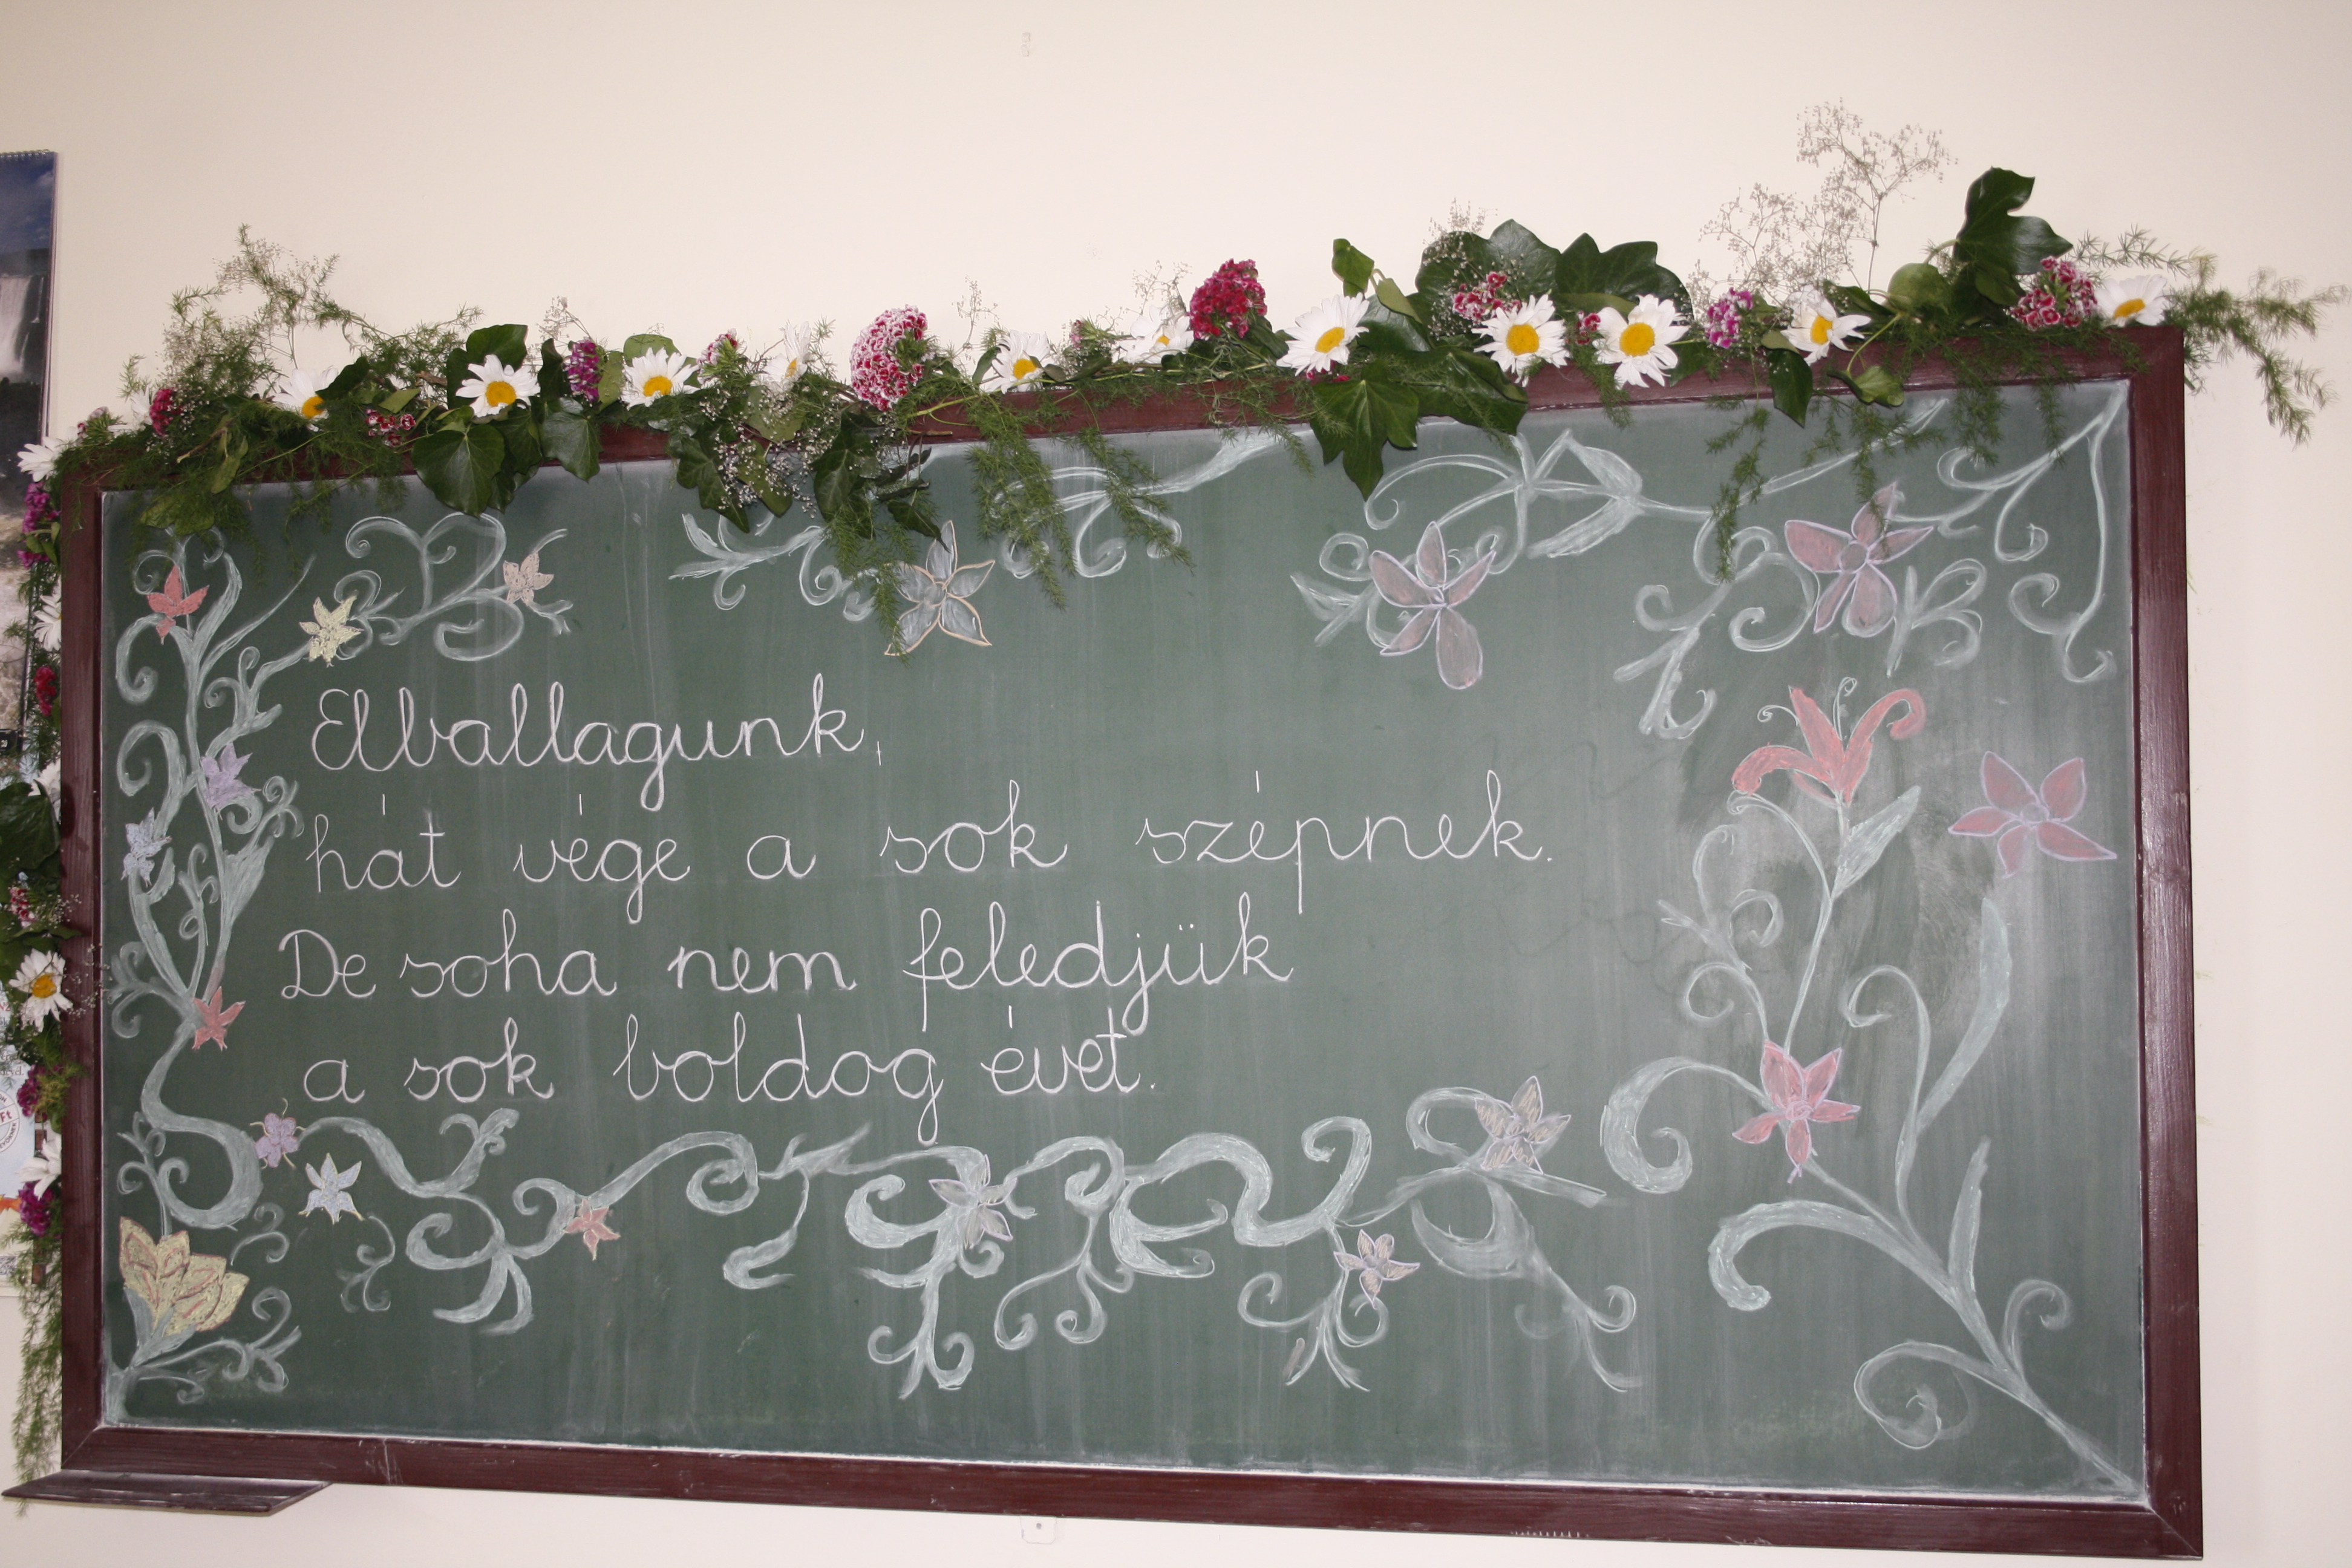 Elballagunk,
hát vége a sok szépnek.
De soha nem feledjük
a sok boldog évet.
Ft